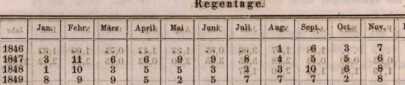 Regentage.
Jan. Febr. März. April. Mai Juni. Juli. Aug. Sept. Oct. Nov.
1846 4 6 3 7
1847 3 11 6 6 9 9 8 4 5 5 6
1848 1 10 3 5 5 3 2 3 10 6 8
1849 8 9 9 5 2 5 7 7 7 2 8